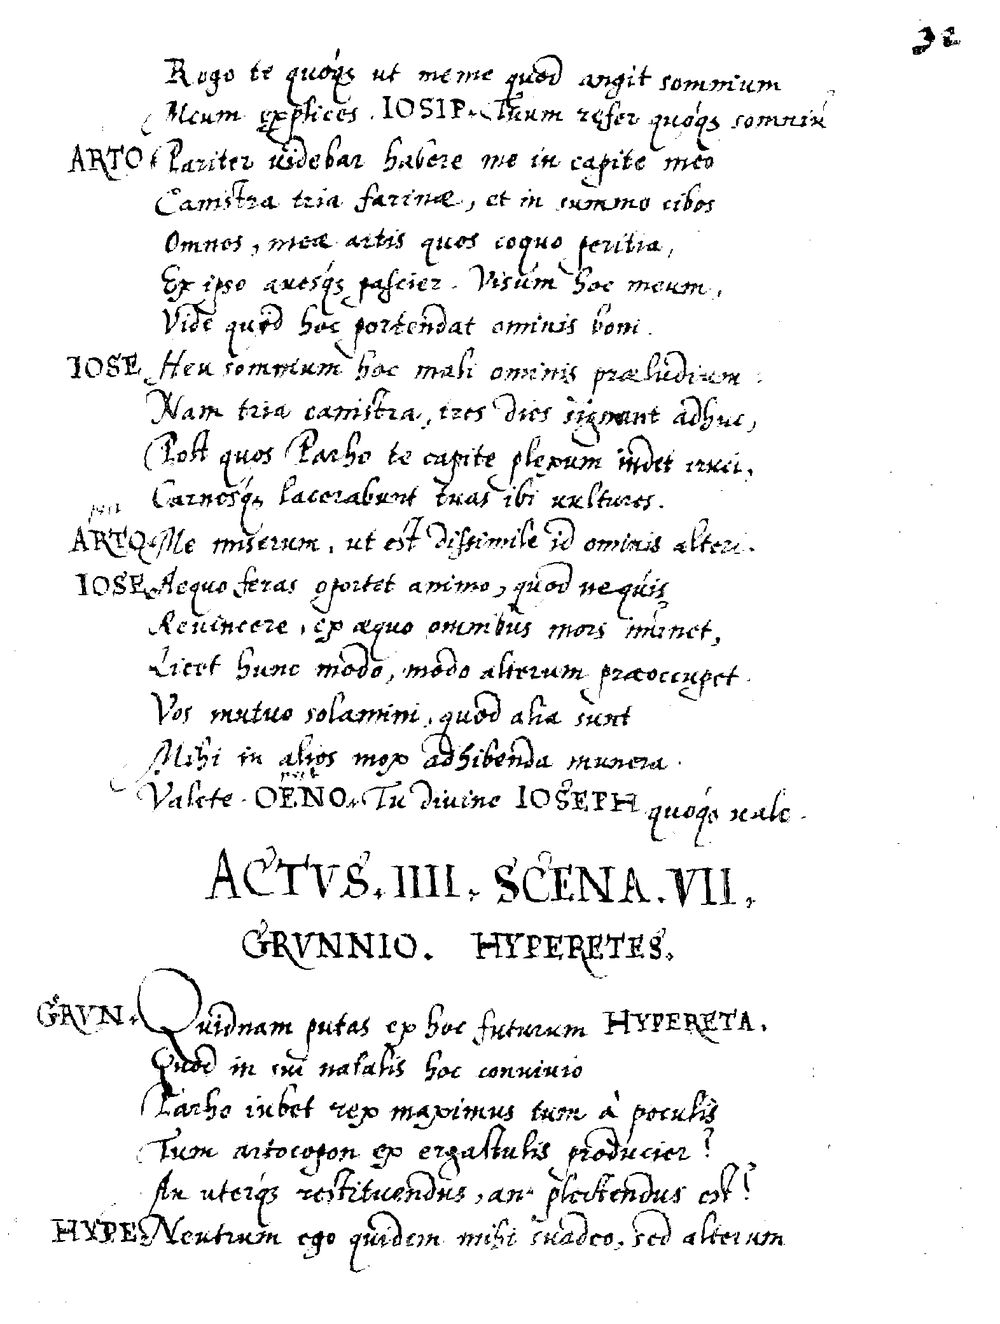 32
Rogo te quoqꝫ ut meme quod angit somnium
Meum explices. IOSIP. Tuum refer quoqꝫ somniū
ARTO. Pariter videbar habere me in capite meo
Canistra tria farinæ, et in summo cibos
Omnes, meæ artis quos coquo peritia,
Ex ipso auesqꝫ pascier. Visum hoc meum,
Vide quid hoc portendat ominis boni.
IOSE. Heu somnium hoc mali ominis præludium:
Nam tria canistra, tres dies signant adhuc,
Post quos Parho te capite plexum indet cruci,
Carnesqꝫ lacerabunt tuas ibi vultures.
ARTO. Me miserum, ut est dissimile id ominis alteri.
IOSE. Aequo feras oportet animo, quod nequis
Reuincere, ex æquo omnibus mors iminet,
Licet hunc modo, modo alterum præoccupet.
Vos mutuo solamini, quod alia sunt
Mihi in alios mox adhibenda munera.
Valete. OENO. Tu diuine IOSEPH quoqꝫ vale.
ACTVS. IIII. SCENA. VII.
GRVNNIO. HYPERETES.
GRVN. Quidnam putas ex hoc futurum HYPERETA.
Quod in sui natalis hoc conuiuio
Parho iubet rex maximus tum à poculis
Tum artocopon ex ergastulis producier?
An uterqꝫ restituendus, an plectendus est?
HYPE. Neutrum ego quidem mihi suadeo, sed alterum